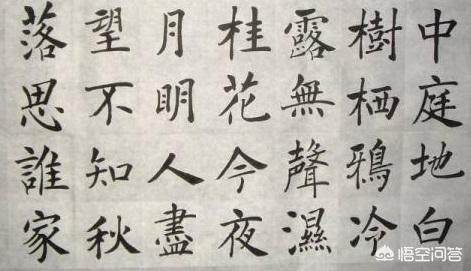 中庭地白
樹栖鴉冷
露無聲濕
桂花今夜
月明人盡
望不知秋
落思誰家
悟空问答